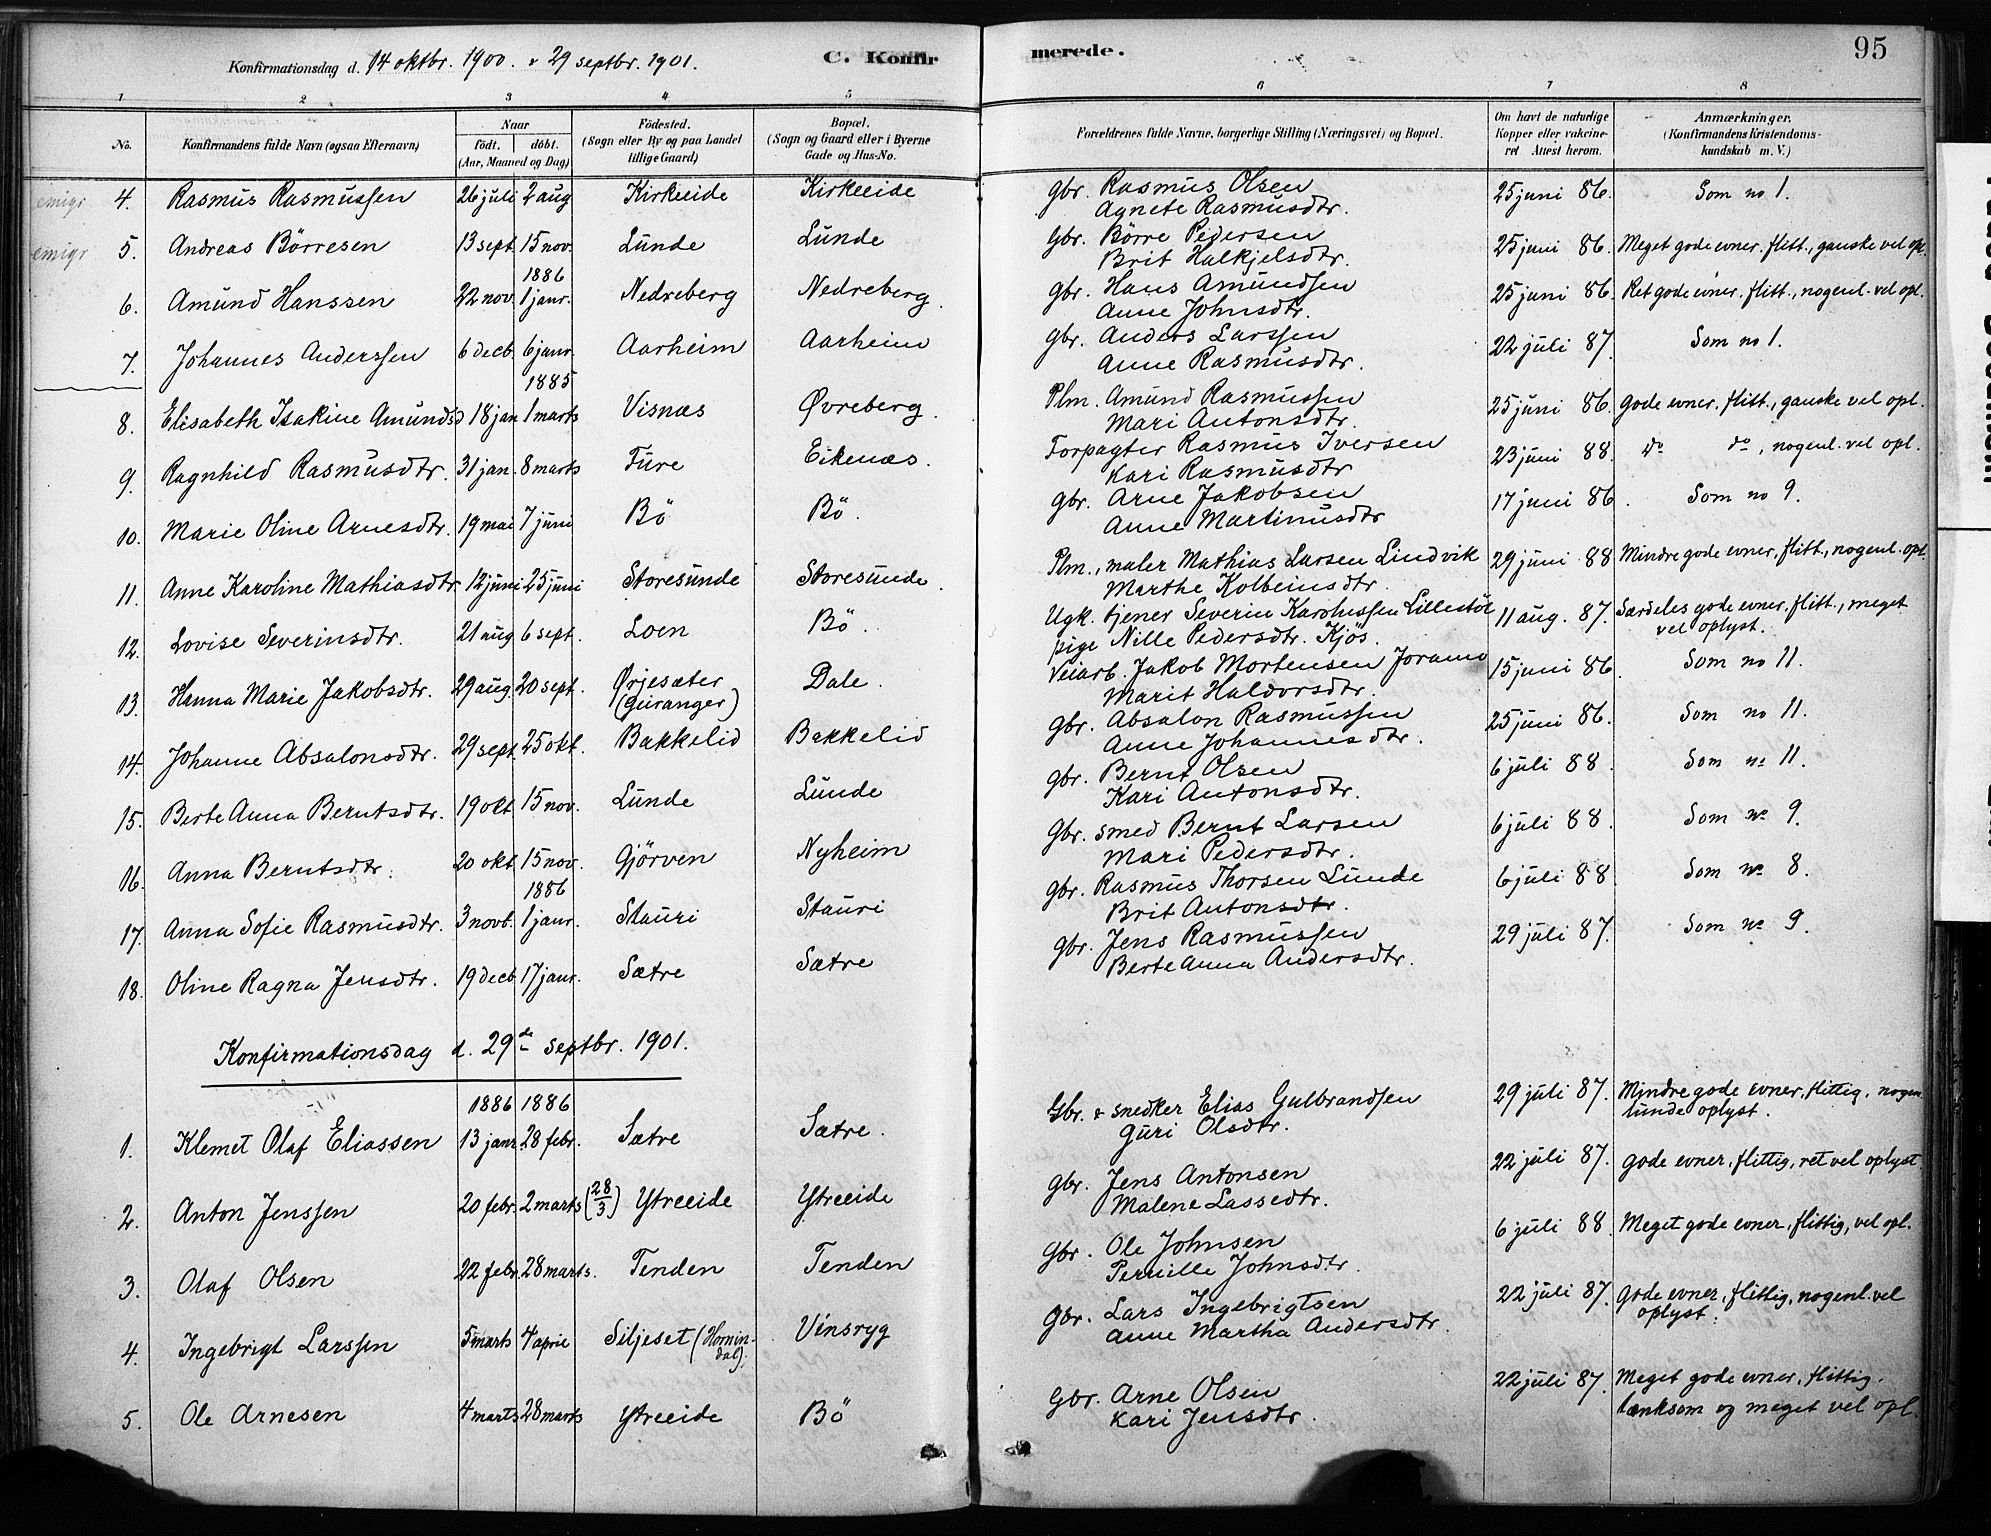 Konfirmationsdag d. 14 oktbr. 1900. & 29 septbr. 1901. C. Konfir merede. 95
1 2 3 4 5 6 7 8
No. Konfirmandens fulde Navn (ogsaa Efternavn) Naar födt. döbt. (Aar, Maaned og Dag) Födested. (Sogn eller By og paa Landet tillige Gaard) Bopæl. (Sogn og Gaard eller i Byerne Gade og Hus-No. Forældrenes fulde Navne, borgerlige Stilling (Næringsvei) og Bopæl. Om havt de naturlige Kopper eller vakcineret Attest herom. Anmærkninger. (Konfirmandens Kristendomskundskab m. V.)
emigr 4. Rasmus Rasmussen 26 juli 2 aug Kirkeeide Kirkeeide Gbr. Rasmus Olsen 25 juni 86. Som no 1.
Agnete Rasmusdtr.
emigr 5. Andreas Börresen 13 sept. 15 nov. Lunde Lunde Gbr. Börre Pedersen 25 juni 86. Meget gode evner, flitt., ganske vel opl.
Brit Halkjelsdtr.
1886
6. Amund Hanssen 22 nov. 1 janr. Nedreberg Nedreberg. Gbr. Hans Amundsen 25 juni 86. Ret gode evner, flitt., nogenl. vel opl.
Anne Johnsdtr.
7. Johannes Anderssen 6 decb. 6 janr. Aarheim Aarheim Gbr. Anders Larssen 22 juli 87. Som no 1.
Anne Rasmusdtr.
1885
8. Elisabeth Isakine Amundsd 18 jan 1 marts Visnæs Øvreberg. Plm. Amund Rasmussen 25 juni 86. Gode evner, flitt., ganske vel opl.
Mari Antonsdtr.
9. Ragnhild Rasmusdtr. 31 jan. 8 marts Fure Eikenæs. Forpagter Rasmus Iversen 23 juni 88. do do, nogenl. vel opl.
Kari Rasmusdtr
10. Marie Oline Arnesdtr. 19 mai 7 juni Bö Bö. Gbr. Arne Jakobsen 17 juni 86. Som no 9.
Anne Martinusdtr
11. Anne Karoline Mathiasdtr 12 juni 25 juni Storesunde Storesunde. Plm., maler Mathias Larsen Lindvik 29 juni 88 Mindre gode evner, flitt., nogenl. opl.
Marthe Kolbeinsdtr.
12. Lovise Severinsdtr. 21 aug 6 sept. Loen Bö. Ugk. tjener Severin Karolussen Lillestöl 11 aug. 87. Særdeles gode evner, flitt., meget vel oplyst.
pige Nille Pedersdtr. Kjös.
13. Hanna Marie Jakobsdtr. 29 aug. 20 sept. Ørjesæter (Geiranger) Dale. Veiarb. Jakob Mortensen 15 juni 86. Som no 11.
Marit Haldorsdtr.
14. Johanne Absalonsdtr. 29 sept. 25 okt. Bakkelid Bakkelid Gbr. Absalon Rasmussen 25 juni 86. Som no 11.
Anne Johannesdtr.
15. Berte Anna Berntsdtr. 19 okt. 15 nov. Lunde Lunde Gbr. Bernt Olsen 6 juli 88. Som no 11.
Kari Antonsdtr.
16. Anna Berntsdtr. 20 okt. 15 nov. Gjörven Nyheim Gbr. smed Bernt Larsen 6 juli 88. Som no 9.
Mari Pedersdtr.
1886
17. Anna Sofie Rasmusdtr. 3 novb. 1 janr. Stauri Stauri Gbr. Rasmus Thorsen Lunde 6 juli 88. Som no 8.
Brit Antonsdtr.
18. Oline Ragna Jensdtr. 19 decb 17 janr. Sætre Sætre Gbr. Jens Rasmussen 29 juli 87. Som no 9.
Berte Anna Andersdtr.
Konfirmationsdag d. 29de septbr. 1901.
1886 1886
1. Klemet Olaf Eliassen 13 janr. 28 febr. Sætre Sætre. Gbr. & snedker Elias Gulbrandsen 29 juli 87. Mindre gode evner, flittig, nogenlunde oplyst.
Guri Olsdtr.
2. Anton Jenssen 20 febr. 2 marts (28/3) Ytreeide Ytreeide Gbr. Jens Antonsen 22 juli 87. Gode evner, flittig, ret vel oplyst.
Malene Lassedtr.
3. Olaf Olsen 22 febr. 28 marts. Tenden Tenden Gbr. Ole Johnsen 6 juli 88 Meget gode evner, flittig, vel opl.
Pernille Johnsdtr.
4. Ingebrigt Larssen 5 marts 4 april Siljeset (Hornindal). Vinsryg Gbr. Lars Ingebrigtsen 22 juli 87. Gode evner, flittig, nogenl. vel oplyst.
Anne Martha Andersdtr.
5. Ole Arnesen 4 marts 28 marts Ytreeide Bö Gbr. Arne Olsen 22 juli 87. Meget gode evner, flittig,
Kari Jensdtr. tænksom og meget vel opl.